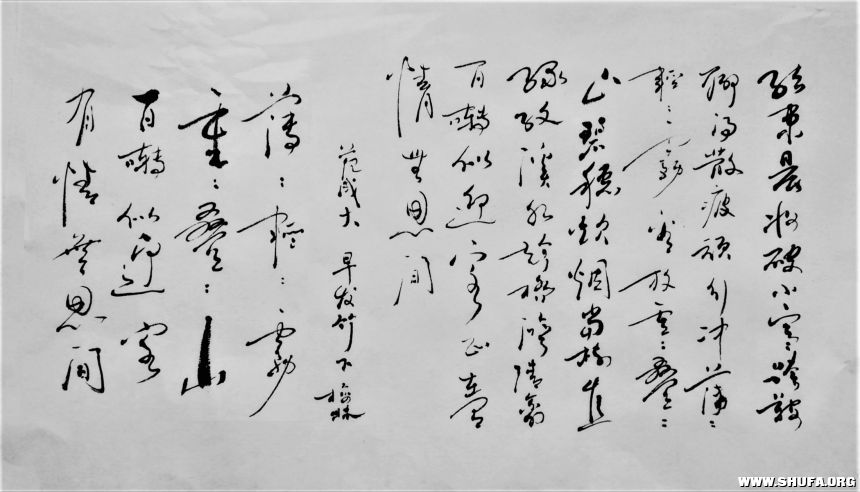 結束晨裝破小寒跨鞍
聊得散疲頑行冲薄々
輕々霧看放重々疊々
山碧穗吹烟當樹直
綠紋溪水趁橋灣清禽
百囀似迎客正在有
情無思間
范成大 早發竹下
薄々輕々霧
重々疊々山
百囀似迎客
有情無思間
WWW.SHUFA.ORG